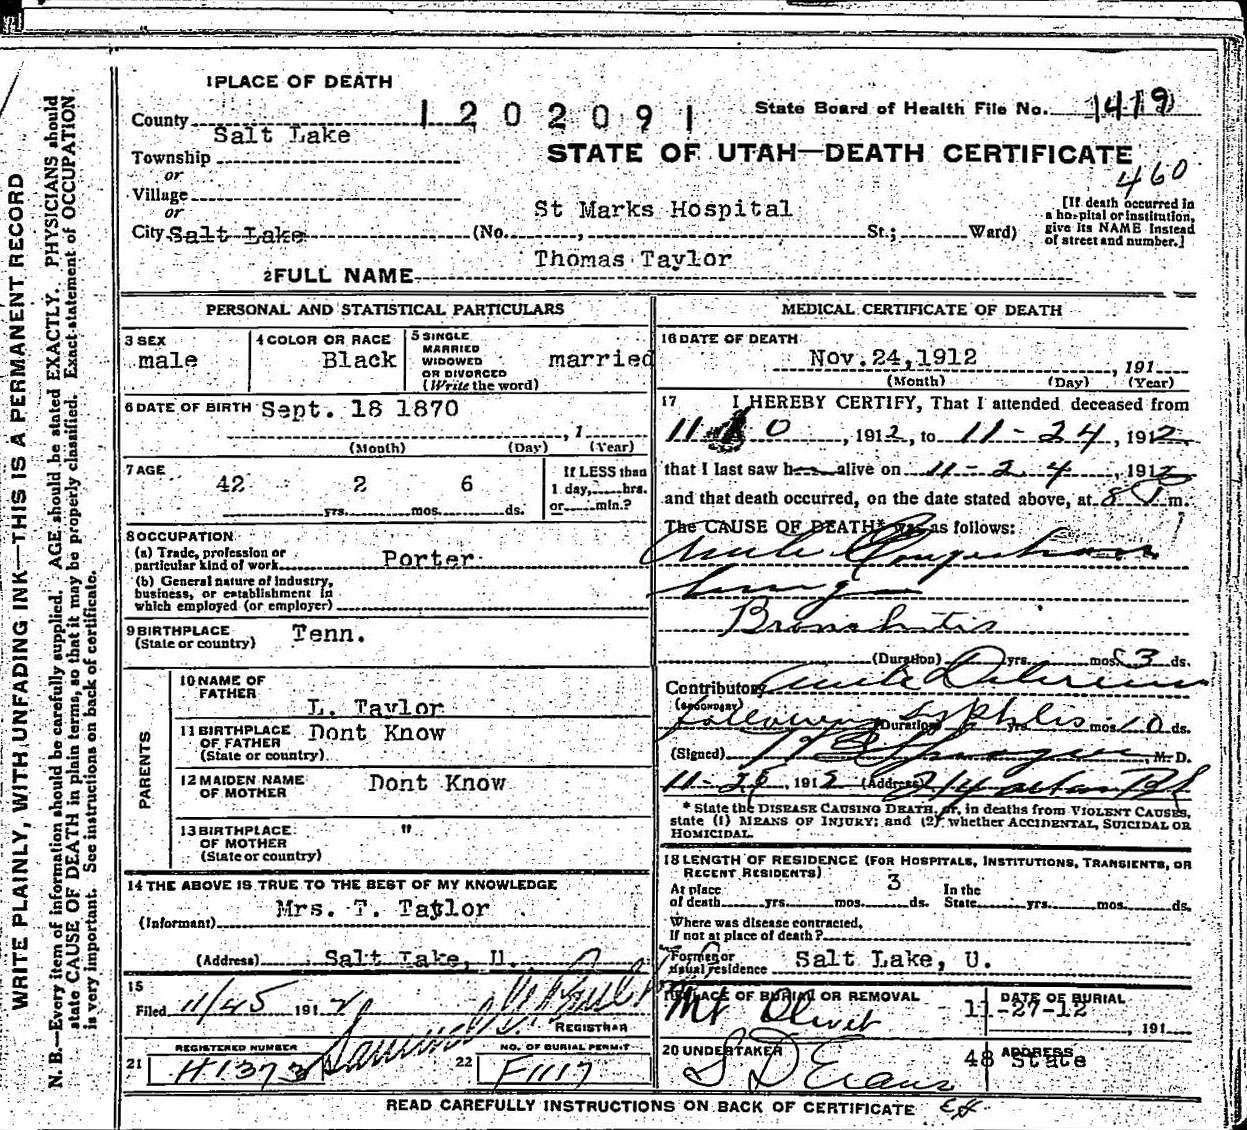 WRITE PLAINLY, WITH UNFADING INK—THIS IS A PERMANENT RECORD
N. B.—Every item of information should be carefully supplied. AGE should be stated EXACTLY. PHYSICIANS should
state CAUSE OF DEATH in plain terms, so that it may be properly classified. Exact statement of OCCUPATION
is very important. See instructions on back of certificate.
1 PLACE OF DEATH
County Salt Lake
1202091
State Board of Health File No. 1419
Township
or
STATE OF UTAH—DEATH CERTIFICATE
460
Village
or
St Marks Hospital
City Salt Lake (No. , St.; Ward)
[If death occurred in
a hospital or institution,
give its NAME instead
of street and number.]
2 FULL NAME Thomas Taylor
PERSONAL AND STATISTICAL PARTICULARS
3 SEX
male
4 COLOR OR RACE
Black
5 SINGLE
MARRIED
WIDOWED
OR DIVORCED
(Write the word)
married
6 DATE OF BIRTH Sept. 18 1870
, 1
(Month) (Day) (Year)
7 AGE
42 yrs. 2 mos. 6 ds.
If LESS than
1 day, hrs.
or min.?
8 OCCUPATION
(a) Trade, profession or
particular kind of work Porter
(b) General nature of industry,
business, or establishment in
which employed (or employer)
9 BIRTHPLACE
(State or country)
Tenn.
PARENTS
10 NAME OF
FATHER
L. Taylor
11 BIRTHPLACE
OF FATHER
(State or country)
Dont Know
12 MAIDEN NAME
OF MOTHER
Dont Know
13 BIRTHPLACE
OF MOTHER
(State or country)
"
14 THE ABOVE IS TRUE TO THE BEST OF MY KNOWLEDGE
(Informant) Mrs. T. Taylor
(Address) Salt Lake, U.
15
Filed 11/45 1912
REGISTRAR
REGISTERED NUMBER
21 H1373
NO. OF BURIAL PERMIT
22 F1117
MEDICAL CERTIFICATE OF DEATH
16 DATE OF DEATH
Nov. 24, 1912 , 191
(Month) (Day) (Year)
17 I HEREBY CERTIFY, That I attended deceased from
, 1912, to 11-24, 1912
that I last saw h alive on 11-24, 1912
and that death occurred, on the date stated above, at 8 P m.
The CAUSE OF DEATH* was as follows:
Acute Congestion
Lungs
Bronchitis
(Duration) yrs. mos. 3 ds.
Contributory Acute Delirium
(SECONDARY)
following syphilis (Duration) yrs. mos. 10 ds.
(Signed) , M. D.
11-25, 1912 (Address)
* State the DISEASE CAUSING DEATH, or, in deaths from VIOLENT CAUSES,
state (1) MEANS OF INJURY; and (2) whether ACCIDENTAL, SUICIDAL OR
HOMICIDAL.
18 LENGTH OF RESIDENCE (FOR HOSPITALS, INSTITUTIONS, TRANSIENTS, OR
RECENT RESIDENTS)
At place
of death yrs. mos. 3 ds.
In the
State yrs. mos. ds.
Where was disease contracted,
If not at place of death?
Former or
usual residence Salt Lake, U.
19 PLACE OF BURIAL OR REMOVAL
Mt Olivet
DATE OF BURIAL
11-27-12 , 191
20 UNDERTAKER
S D Evans
ADDRESS
48 State
READ CAREFULLY INSTRUCTIONS ON BACK OF CERTIFICATE